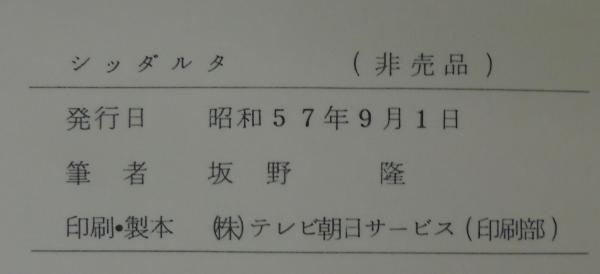 シッダルタ (非売品)
発行日 昭和57年9月1日
筆者 坂野 隆
印刷・製本 (株)テレビ朝日サービス(印刷部)